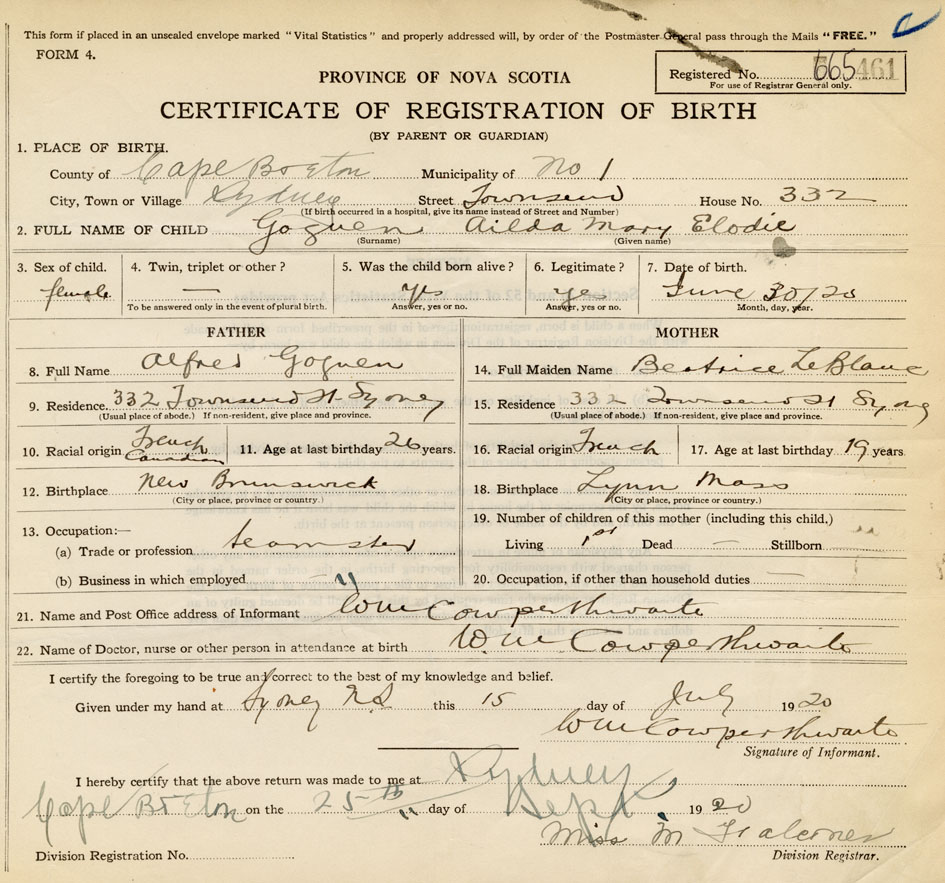 This form if placed in an unsealed envelope marked "Vital Statistics" and properly addressed will, by order of the Postmaster-General pass through the Mails "FREE."
FORM 4.
Registered No. 665 461
For use of Registrar General only.
PROVINCE OF NOVA SCOTIA
CERTIFICATE OF REGISTRATION OF BIRTH
(BY PARENT OR GUARDIAN)
1. PLACE OF BIRTH.
County of Cape Breton Municipality of No 1
City, Town or Village Sydney Street Townsend House No. 332
(If birth occurred in a hospital, give its name instead of Street and Number)
2. FULL NAME OF CHILD Goguen Ailda Mary Elodie
(Surname) (Given name)
3. Sex of child. 4. Twin, triplet or other? 5. Was the child born alive? 6. Legitimate? 7. Date of birth.
female — Yes Yes June 30/20
To be answered only in the event of plural birth. Answer, yes or no. Answer, yes or no. Month, day, year.
FATHER
8. Full Name Alfred Goguen
9. Residence. 332 Townsend St. Sydney
(Usual place of abode.) If non-resident, give place and province.
10. Racial origin French Canadian 11. Age at last birthday 26 years.
12. Birthplace New Brunswick
(City or place, province or country.)
13. Occupation:—
(a) Trade or profession teamster
(b) Business in which employed "
MOTHER
14. Full Maiden Name Beatrice LeBlanc
15. Residence 332 Townsend St Sydney
(Usual place of abode.) If non-resident, give place and province.
16. Racial origin French 17. Age at last birthday 19 years.
18. Birthplace Lynn Mass
(City or place, province or country.)
19. Number of children of this mother (including this child.)
Living 1st Dead — Stillborn
20. Occupation, if other than household duties —
21. Name and Post Office address of Informant Wm Cowperthwaite
22. Name of Doctor, nurse or other person in attendance at birth Wm Cowperthwaite
I certify the foregoing to be true and correct to the best of my knowledge and belief.
Given under my hand at Sydney N.S. this 15 day of July 1920
Wm Cowperthwaite
Signature of Informant.
I hereby certify that the above return was made to me at Sydney
Cape Breton on the 25th day of Sept 1920
Miss M Falconer
Division Registration No. Division Registrar.